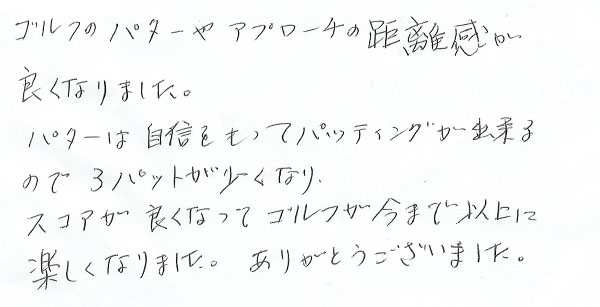 ゴルフのパターやアプローチの距離感が
良くなりました。
パターは自信をもってパッティングが出来る
ので3パットが少くなり、
スコアが良くなってゴルフが今まで以上に
楽しくなりました。ありがとうございました。